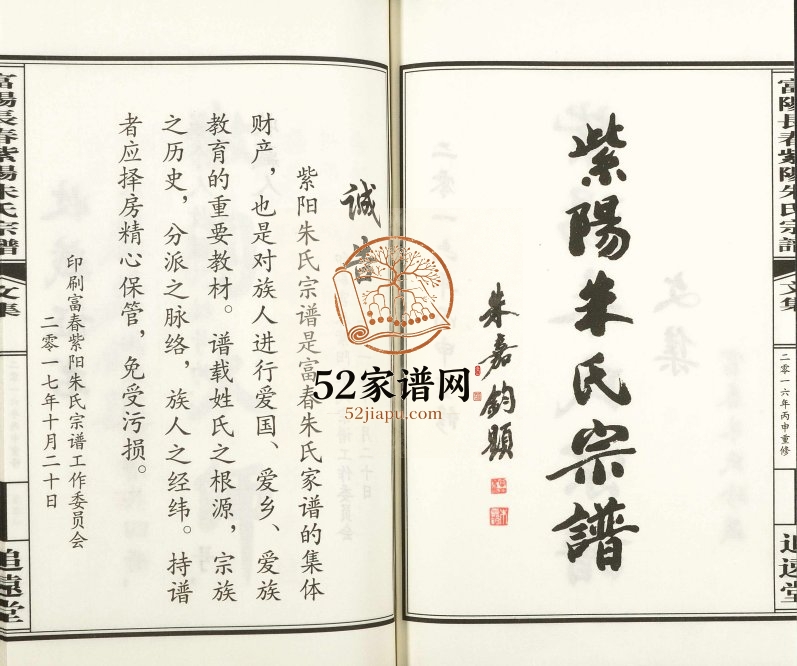 富陽長春紫陽朱氏宗譜
文集
二零一六年丙申重修
追遠堂
紫陽朱氏宗譜
朱嘉鈞題
诚告
紫阳朱氏宗谱是富春朱氏家谱的集体
财产，也是对族人进行爱国、爱乡、爱族
教育的重要教材。谱载姓氏之根源，宗族
之历史，分派之脉络，族人之经纬。持谱
者应择房精心保管，免受污损。
印刷富春紫阳朱氏宗谱工作委员会
二零一七年十月二十日
富陽長春紫陽朱氏宗譜
文集
追遠堂
52家谱网
52jiapu.com